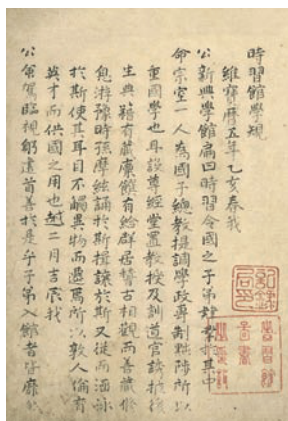 時習館學規
維寶曆五年乙亥春我
公新興學館扁曰時習令國之子弟肄業於其中
命宗室一人為國子總教提調學政專制黜陟所以
重國學也且設尊經堂置教授及訓導官誘掖後
生典籍有藏廩餼有給群居稽古相觀而善藏修
息游豫時孫摩絃誦於斯揖讓於斯又從而涵泳
於斯使其耳目不觸異物而遷焉所以敦人倫育
英才而供國之用也越二月吉辰我
公命駕臨視躬遣首善於是乎子弟入館者皆靡